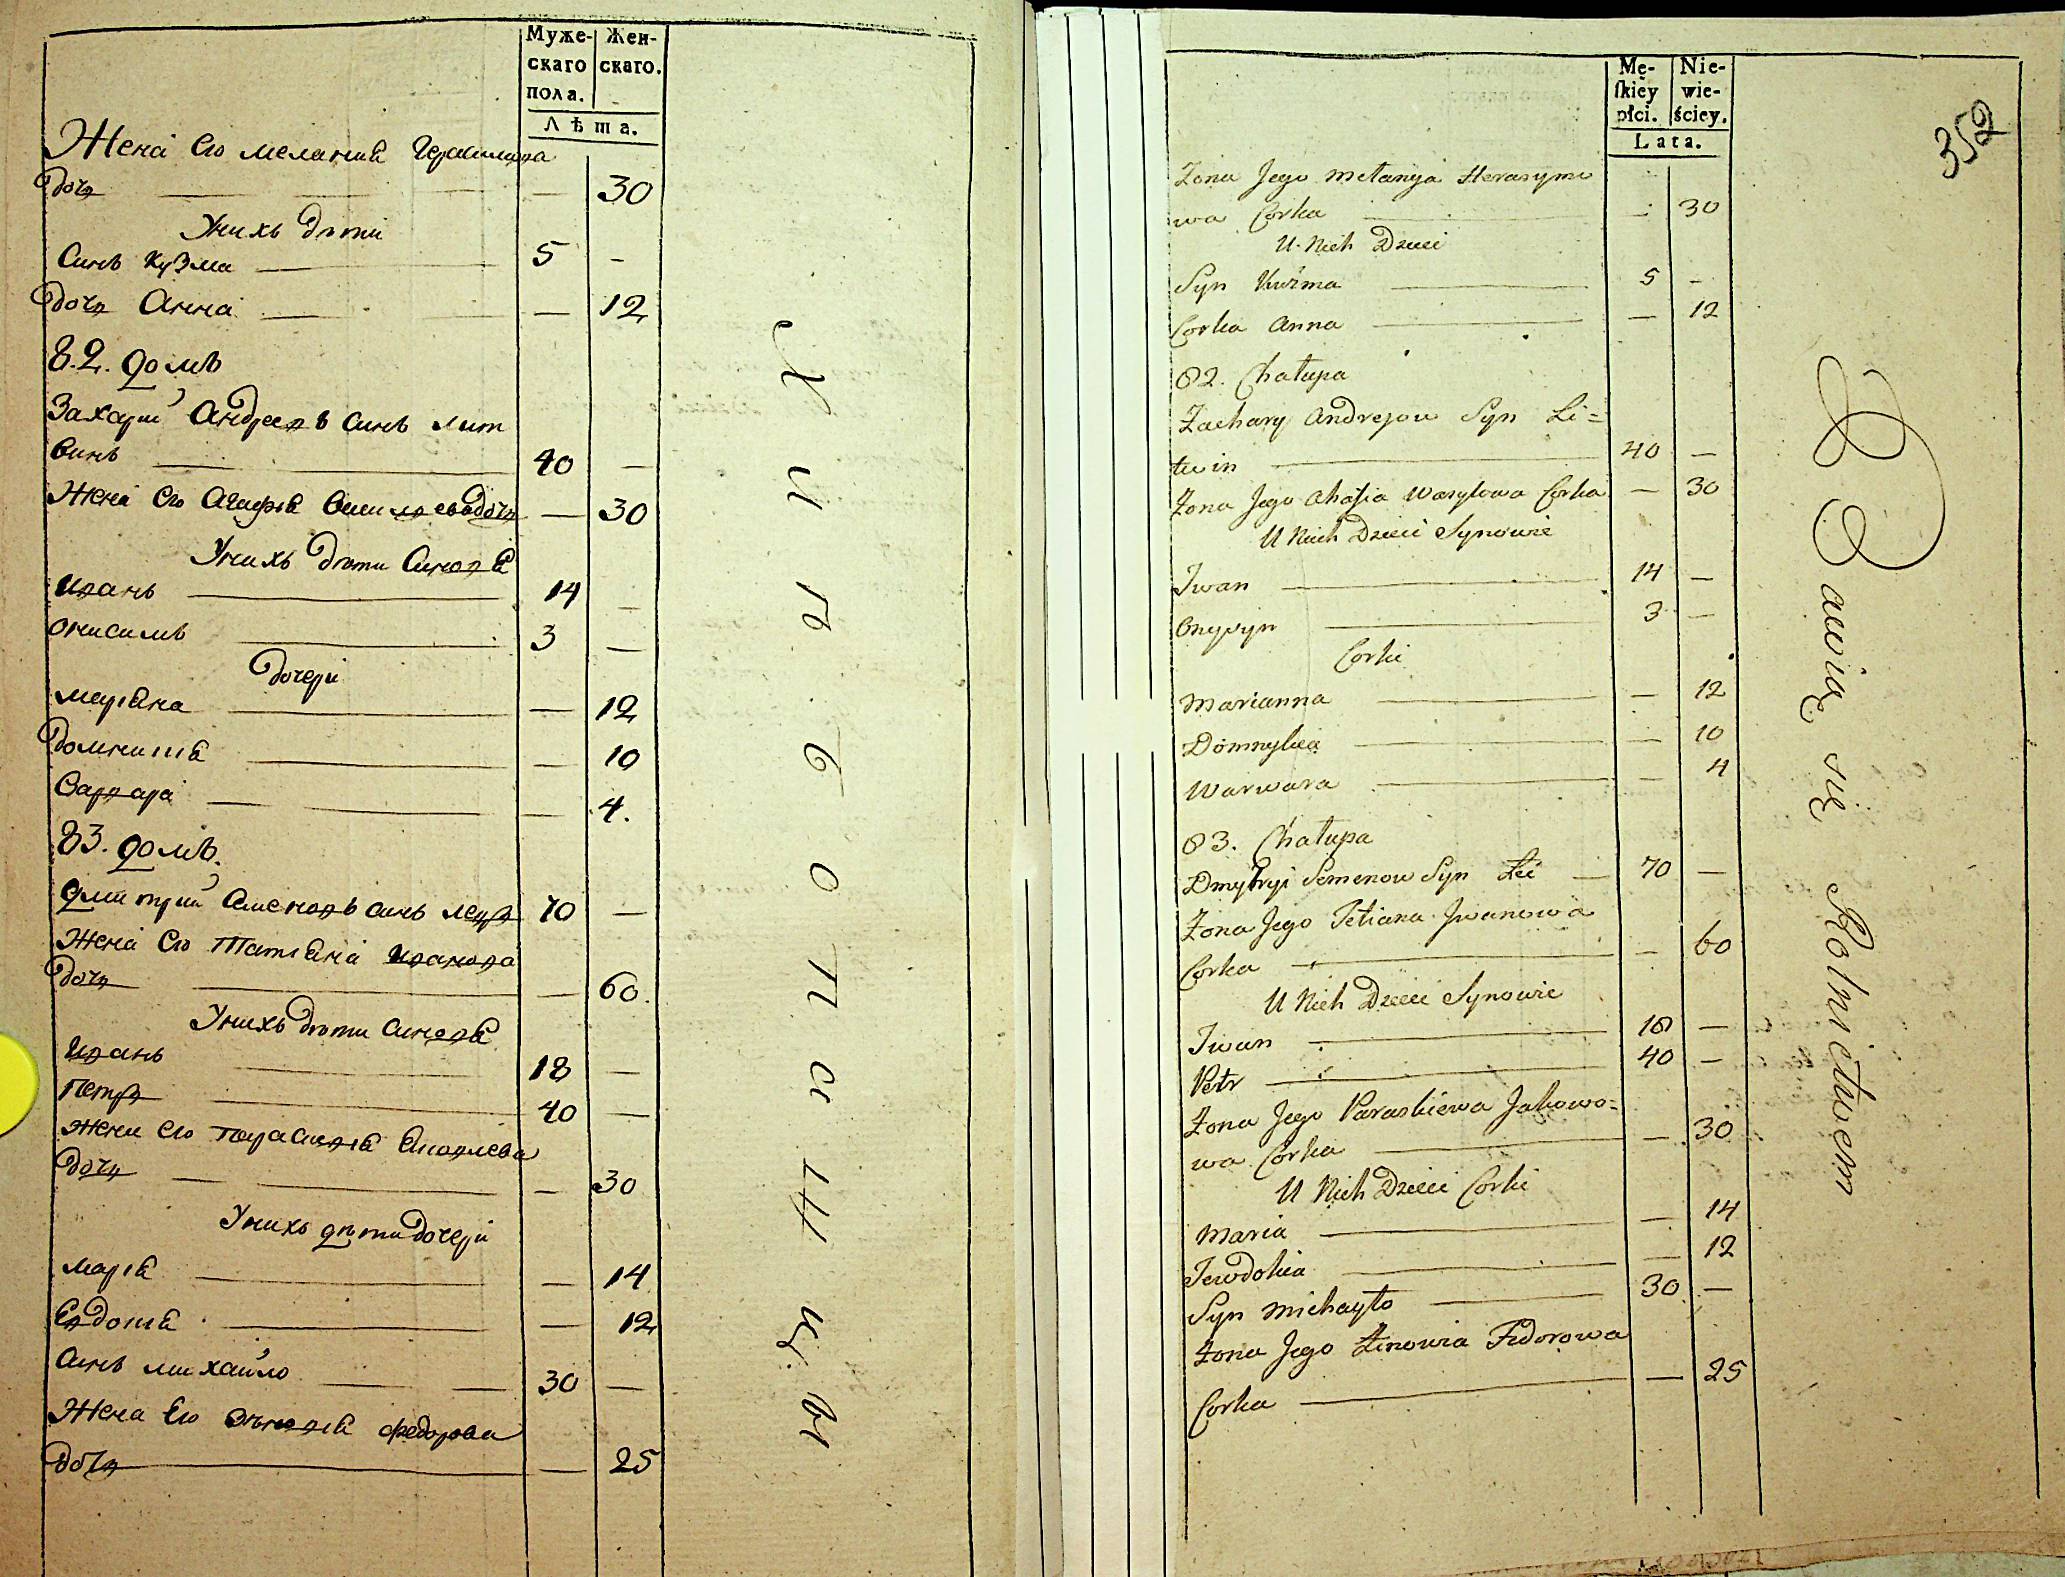 Муже- Жен-
скаго скаго.
пола.
Лѣта.
Жена Его Мелания Герасимова
дочь — 30
У нихъ дѣти
Синъ Кузма 5 —
дочь Анна — 12
82. домъ
Захарий Андреевъ синъ Лит
винъ 40 —
Жена Его Агафия Василевадочь — 30
У нихъ дѣти Синовя
Иванъ 14 —
Онисимъ 3 —
дочери
Мариѣна — 12
Домникия — 10
Варвара — 4.
83. домъ.
Дмитрий Семеновъ синъ 70 —
Жена Его Татиѣна Иванова
дочь — 60.
У нихъ дѣти Синовя
Иванъ 18 —
Петръ 40 —
Жена Его Параскивия Яковлева
дочь — 30
У нихъ дѣти дочери
Мария — 14
Евдокия — 12
Синъ Михайло 30 —
Жена Его Зѣновия Федорова
дочь — 25
Хлѣбопашцы
Mę- Nie-
ſkiey wie-
płci. ściey.
Lata.
352
Żona Jego Mełanyja Herasymo
wa Corka — 30
U Nich Dzieci
Syn Kuźma 5 —
Corka Anna — 12
82. Chałupa
Zachary Andrejow Syn Li=
twin 40 —
Żona Jego Ahafia Wasylowa Corka — 30
U Nich Dzieci Synowie
Iwan 14 —
Onysym 3 —
Corki
Marianna — 12
Domnykia — 10
Warwara — 4
83. Chałupa
Dmytryi Semenow Syn 70 —
Żona Jego Tetiana Iwanowa
Corka — 60
U Nich Dzieci Synowie
Iwan 18 —
Petr 40 —
Żona Jego Paraskiewa Jakowo=
wa Corka — 30
U Nich Dzieci Corki
Maria — 14
Jewdokia — 12
Syn Michayło 30 —
Żona Jego Zinowia Fedorowa
Corka — 25
Bawią się Rolnictwem